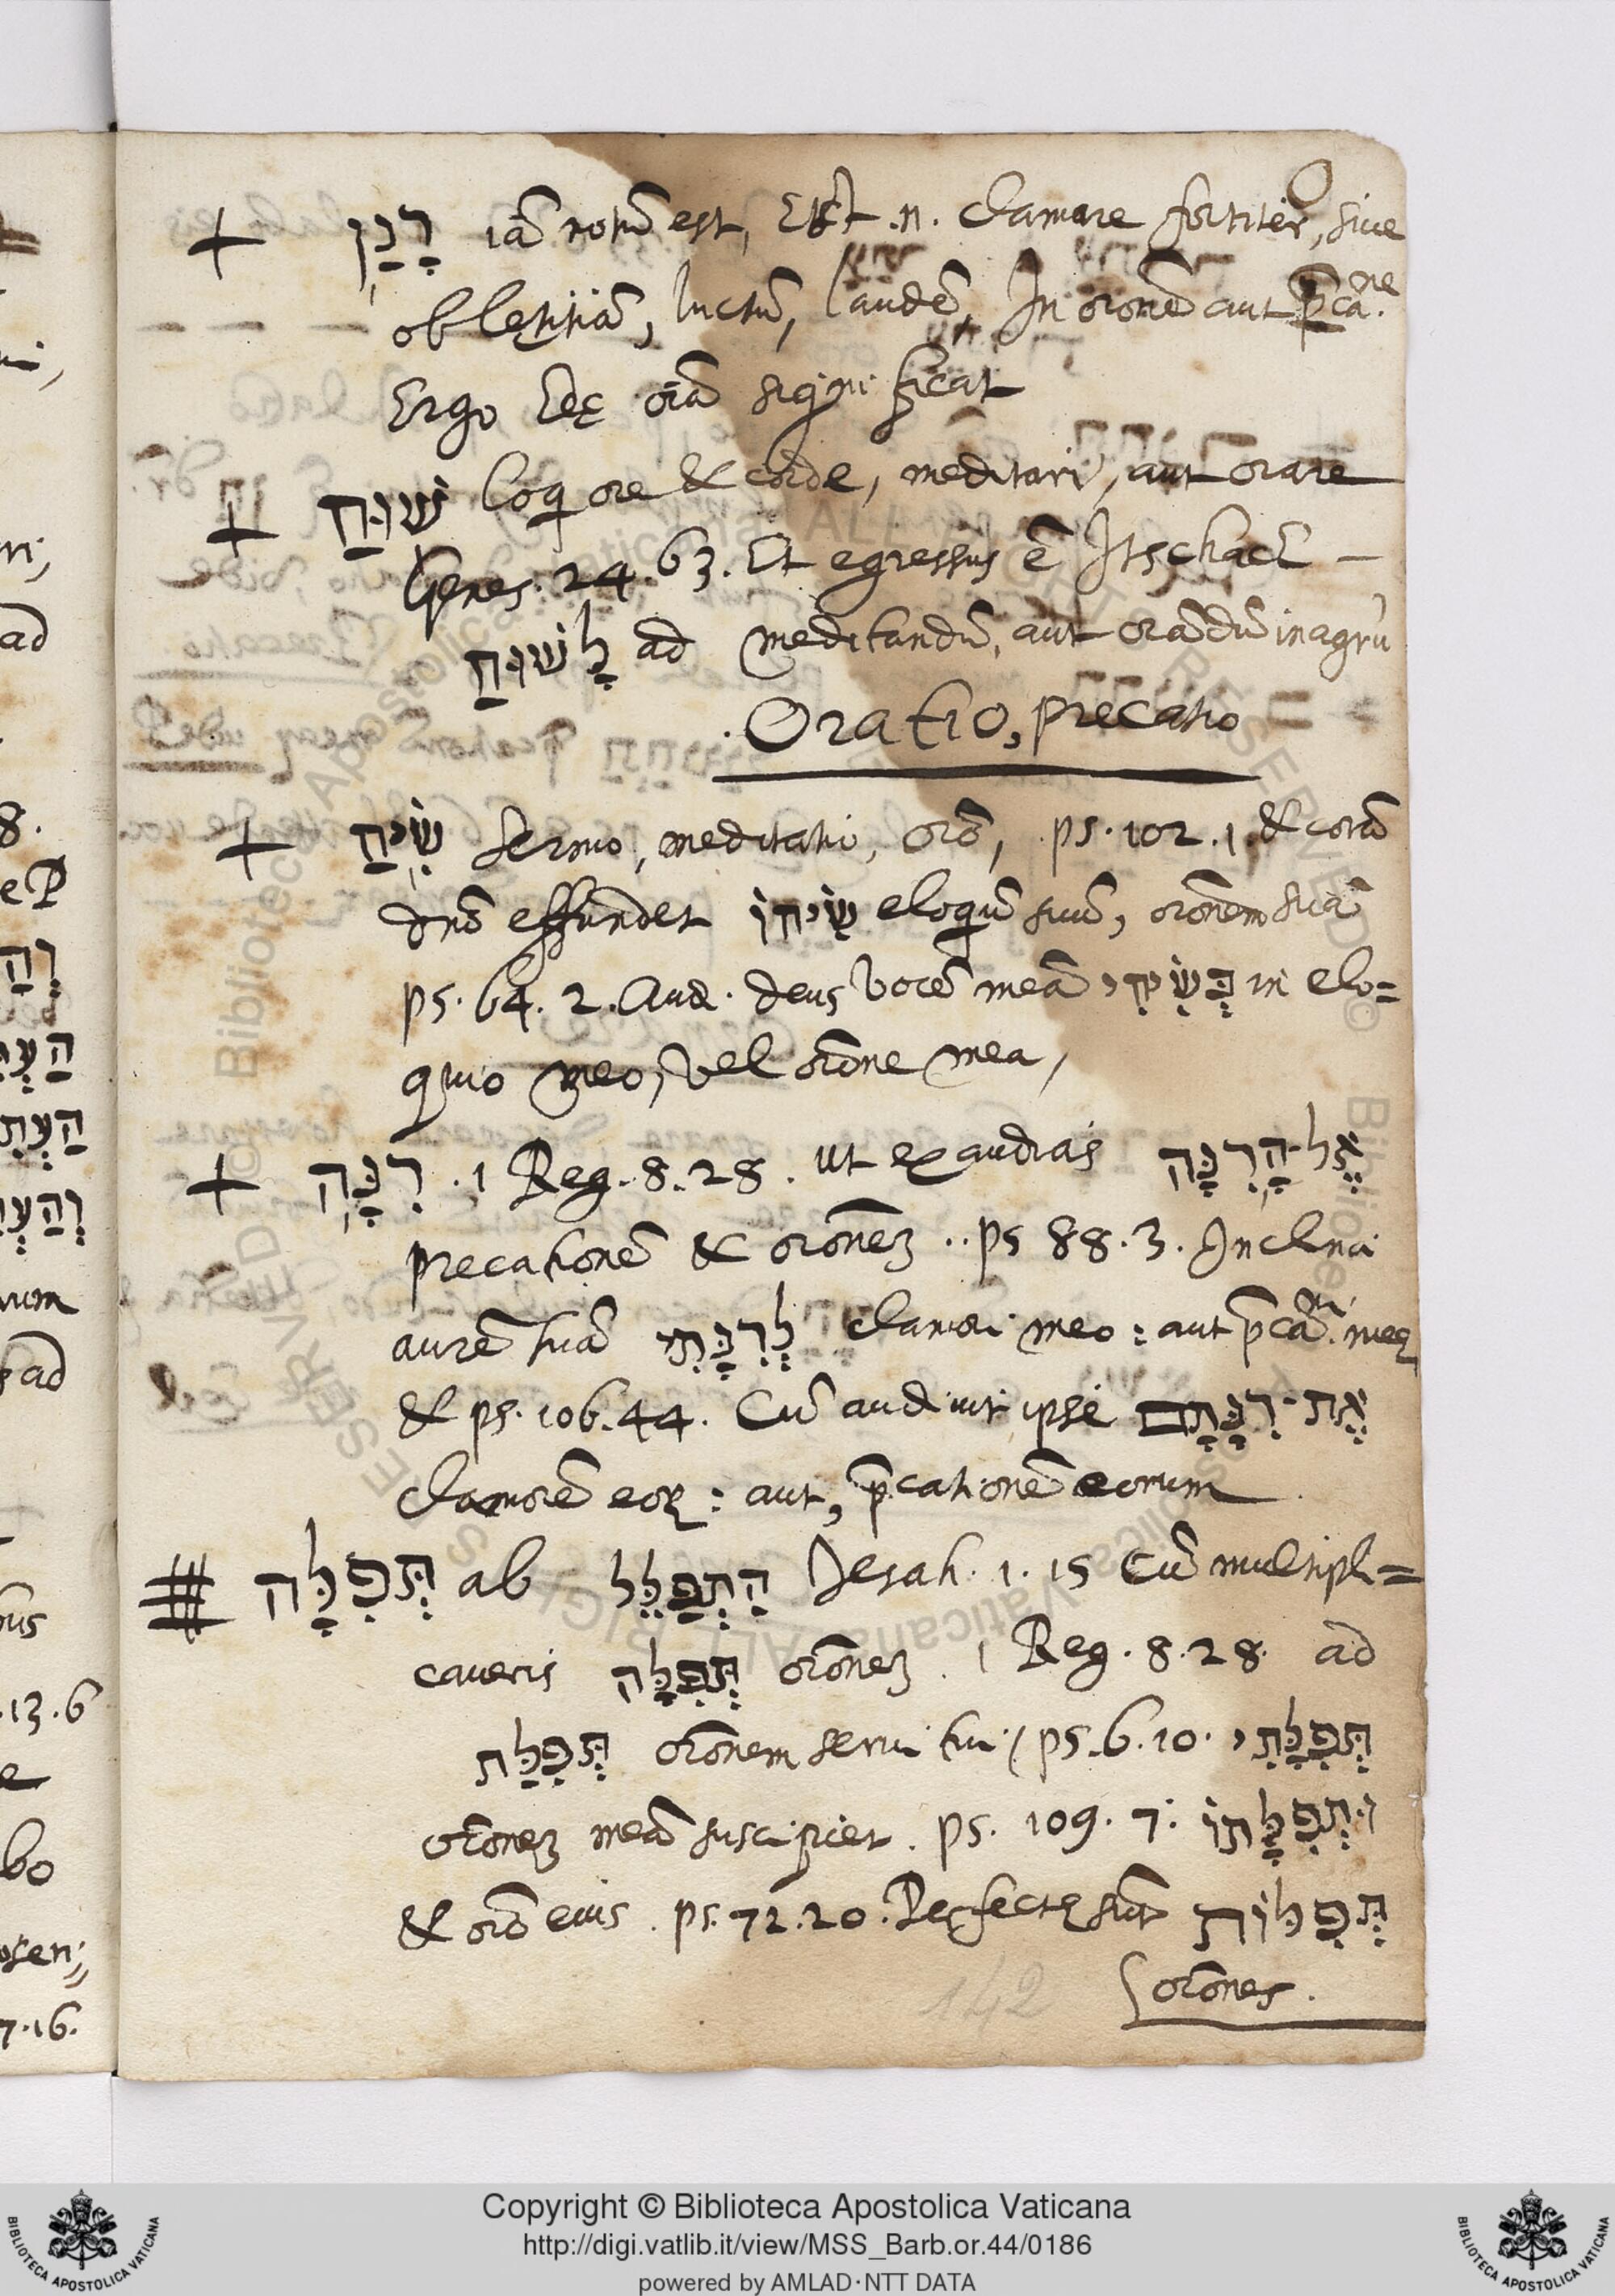 + רָנַן iā notū est, Est .n. clamare fortiter, siue
ob lętitiā, luctū, laudē, In oronē aut p̄ca.ne
Ergo hęc oīa significat
+ שׂוּחַ loq ore & corde, meditari, aut orare
Genes. 24. 63. Et egressus ē Itschac
לָשׂוּחַ ad meditandū, aut orādū in agrū
Oratio, precatio
+ שִׂיחַ sermo, meditatio, orō, ps. 102. 1. & corā
dnō effundet שִׂיחוֹ eloqū suū, orōnem suā
ps. 64. 2. Aud. deus vocē meā בְּשִׂיחִי in elo=
quio meo, vel orōne mea,
+ רִנָּה . 1 Reg. 8. 28. ut exaudias אֶל־הָרִנָּה
precationē & orōnem .. ps 88. 3. Inclina
aurē tuā לְרִנָּתִי clamori meo : aut p̄cā.ni meę
& ps. 106. 44. Cū audiuit ipse אֶת־רִנָּתָם
clamorē eoꝝ : aut, p̄cationē eorum
תְּפִלָּה ab הִתְפַּלֵּל Jesah. 1. 15 Cū multipli=
caueris תְּפִלָּה orōnem . 1 Reg. 8. 28. ad
תְּפִלַּת orōnem serui tui / ps. 6. 10. תְּפִלָּתִי
orōnem meā suscipiet . ps. 109. 7. וּתְפִלָּתוֹ
& orō eius . ps. 72. 20. Perfectę sūt תְּפִלּוֹת
orōnes .
142
Copyright © Biblioteca Apostolica Vaticana
http://digi.vatlib.it/view/MSS_Barb.or.44/0186
powered by AMLAD·NTT DATA